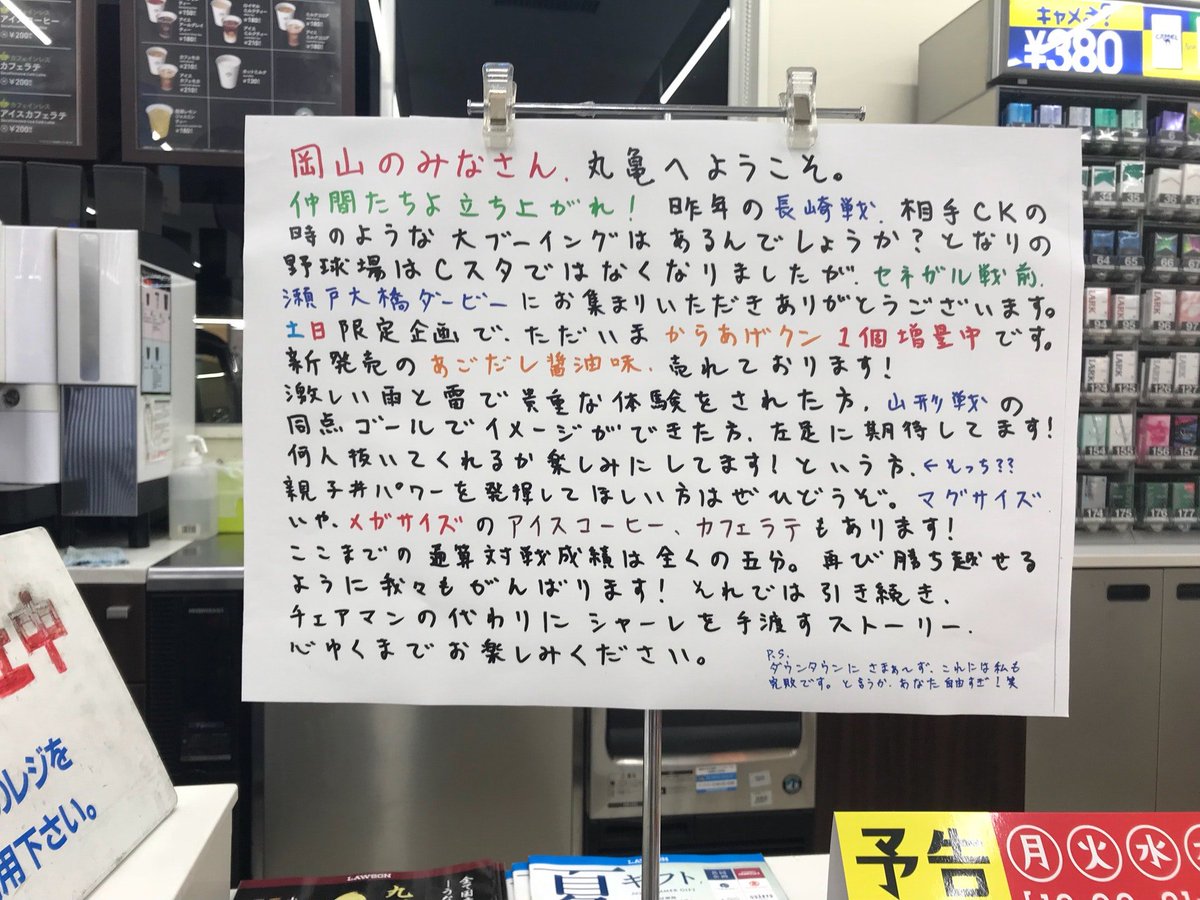 アイスコーヒー
¥200
カフェラテ
¥200
アイスカフェラテ
¥200
キャメル
¥380
岡山のみなさん、丸亀へようこそ。
仲間たちよ立ち上がれ! 昨年の長崎戦、相手CKの
時のような大ブーイングはあるんでしょうか?となりの
野球場はCスタではなくなりましたが、セネガル戦前、
瀬戸大橋ダービーにお集まりいただきありがとうございます。
土日限定企画で、ただいま からあげクン 1個増量中です。
新発売のあごだし醤油味、売れております!
激しい雨と雷で貴重な体験をされた方、山形戦の
同点ゴールでイメージができた方、左足に期待してます!
何人抜いてくれるか楽しみにしてます!という方、←そっち??
親子丼パワーを発揮してほしい方はぜひどうぞ。マグサイズ
いや、メガサイズのアイスコーヒー、カフェラテもあります!
ここまでの通算対戦成績は全くの五分。再び勝ち越せる
ように我々もがんばります! それでは引き続き、
チェアマンの代わりにシャーレを手渡すストーリー、
心ゆくまでお楽しみください。
P.S.
ダウンタウンにさまぁ〜ず、これには私も
完敗です。と言うか、あなた自由すぎ!笑
レジを
用下さい。
LAWSON
LAWSON
夏ギフト
予告
月火水